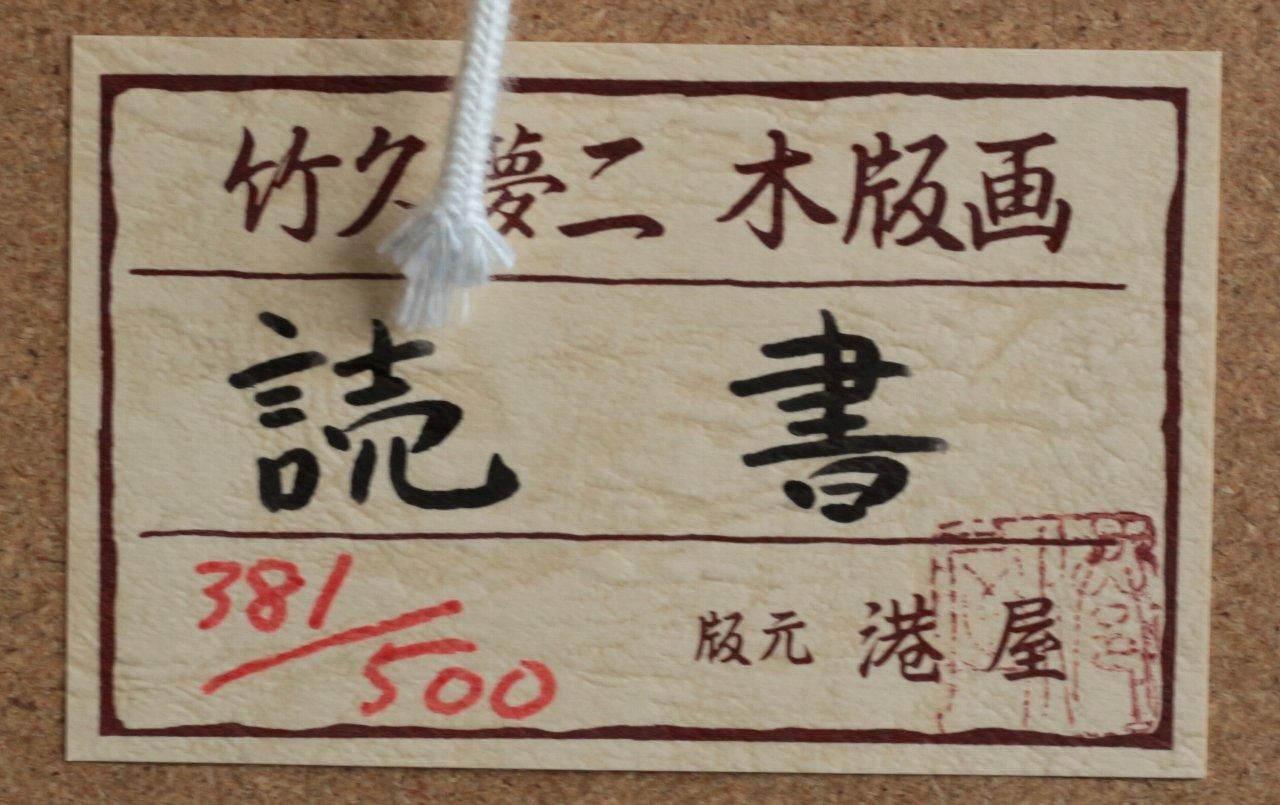 竹久夢二 木版画
読 書
381/500
版元 港屋